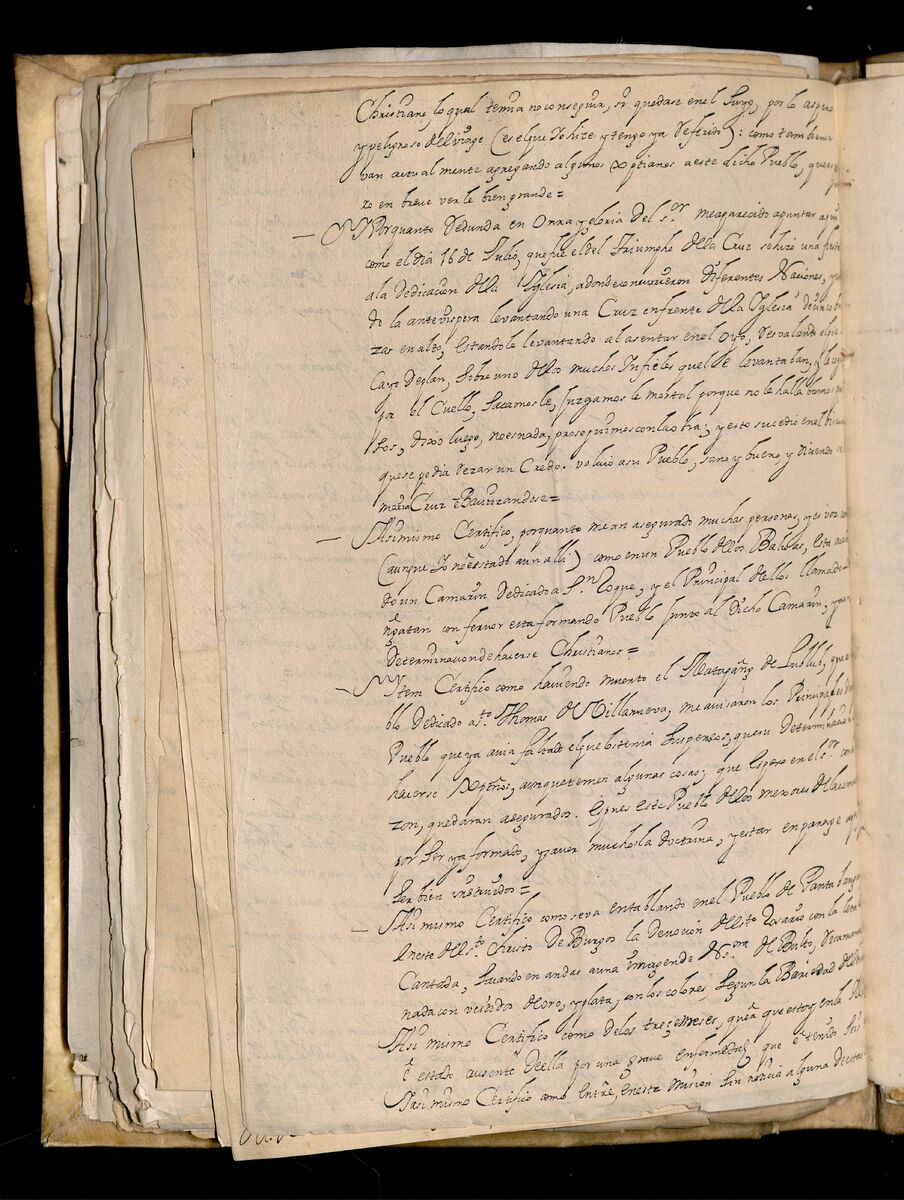 Christiano, lo qual temia no conseguir, si quedase en el suyo, por lo aspero
y peligroso del viage (es el que yo hize y tengo ya referido): como tambien se
van actualmente agregando algunos Xptianos a este dicho Pueblo, que espe
ro en breve verle bien grande =
Yporquanto redunda en Onra y gloria del s.or me a parecido apuntar aqui
como el dia 16 de Julio, que fue el del Triumpho de la Cruz se hizo una fiesta
a la Dedicacion de la Iglesia, a donde concurrieron diferentes Naciones, y
do la antevispera levantando una Cruz enfrente de la Iglesia de cinco bra
zas en alto, estandole levantando al asentar en el oyo, resvalando el pie
Cayo de plan, sobre uno de los muchos Infieles que le levantaban, y le cojio
por el Cuello, sacamosle, juzgamosle mortal porque no le hallabamos pul
sos, dixo luego, no es nada, proseguimos con la obra; y esto sucedio en el
que se podia rezar un Credo. volvio a su Pueblo, sano y bueno, y diciendo
maria Cruz e Bautizandose =
Asimismo Certifico, porquanto me an asegurado muchas personas, y es voz
(aunque yo no e estado aun alli) como en un Pueblo de los Balubas, esta
do un Camarin Dedicado a S.n Roque, y el Principal de ellos llamado
ngatan con fervor esta formando Pueblo junto al dicho Camarin, y
determinacion de hacerse Christianos =
Ytem Certifico como haviendo muerto el Matapang de Lublub, que
blo Dedicado a s.to Thomas de Villanueva, me avisaron los Principales
Pueblo que ya avia faltado el que los tenia suspensos, que su determinacion
hacerse Xptños, aunque temen algunas cosas; que espero en el s.or
zon, quedaran asegurados. Es pues este Pueblo de los mexores de la
por ser ya formado, y aver muchos la doctrina, y estar en parage
ser bien instruidos =
Asi mismo Certifico como se va entablando en el Pueblo de Pantabangan
nero del s.to Christo de Burgos la Devocion del s.to Rosario con la letania
Cantada, sacando en andas a una imagen de N.ra s.ora de Bulto, ricamente
nada con vestidos de oro, y plata, con los colores, segun la Bariedad del
Asi mismo Certifico como de los treze meses, que a que estoy, en la
e estado ausente de ella por una grave enfermedad que e tenido
Yasi mismo Certifico como entre, en esta mision sin noticia alguna de estas